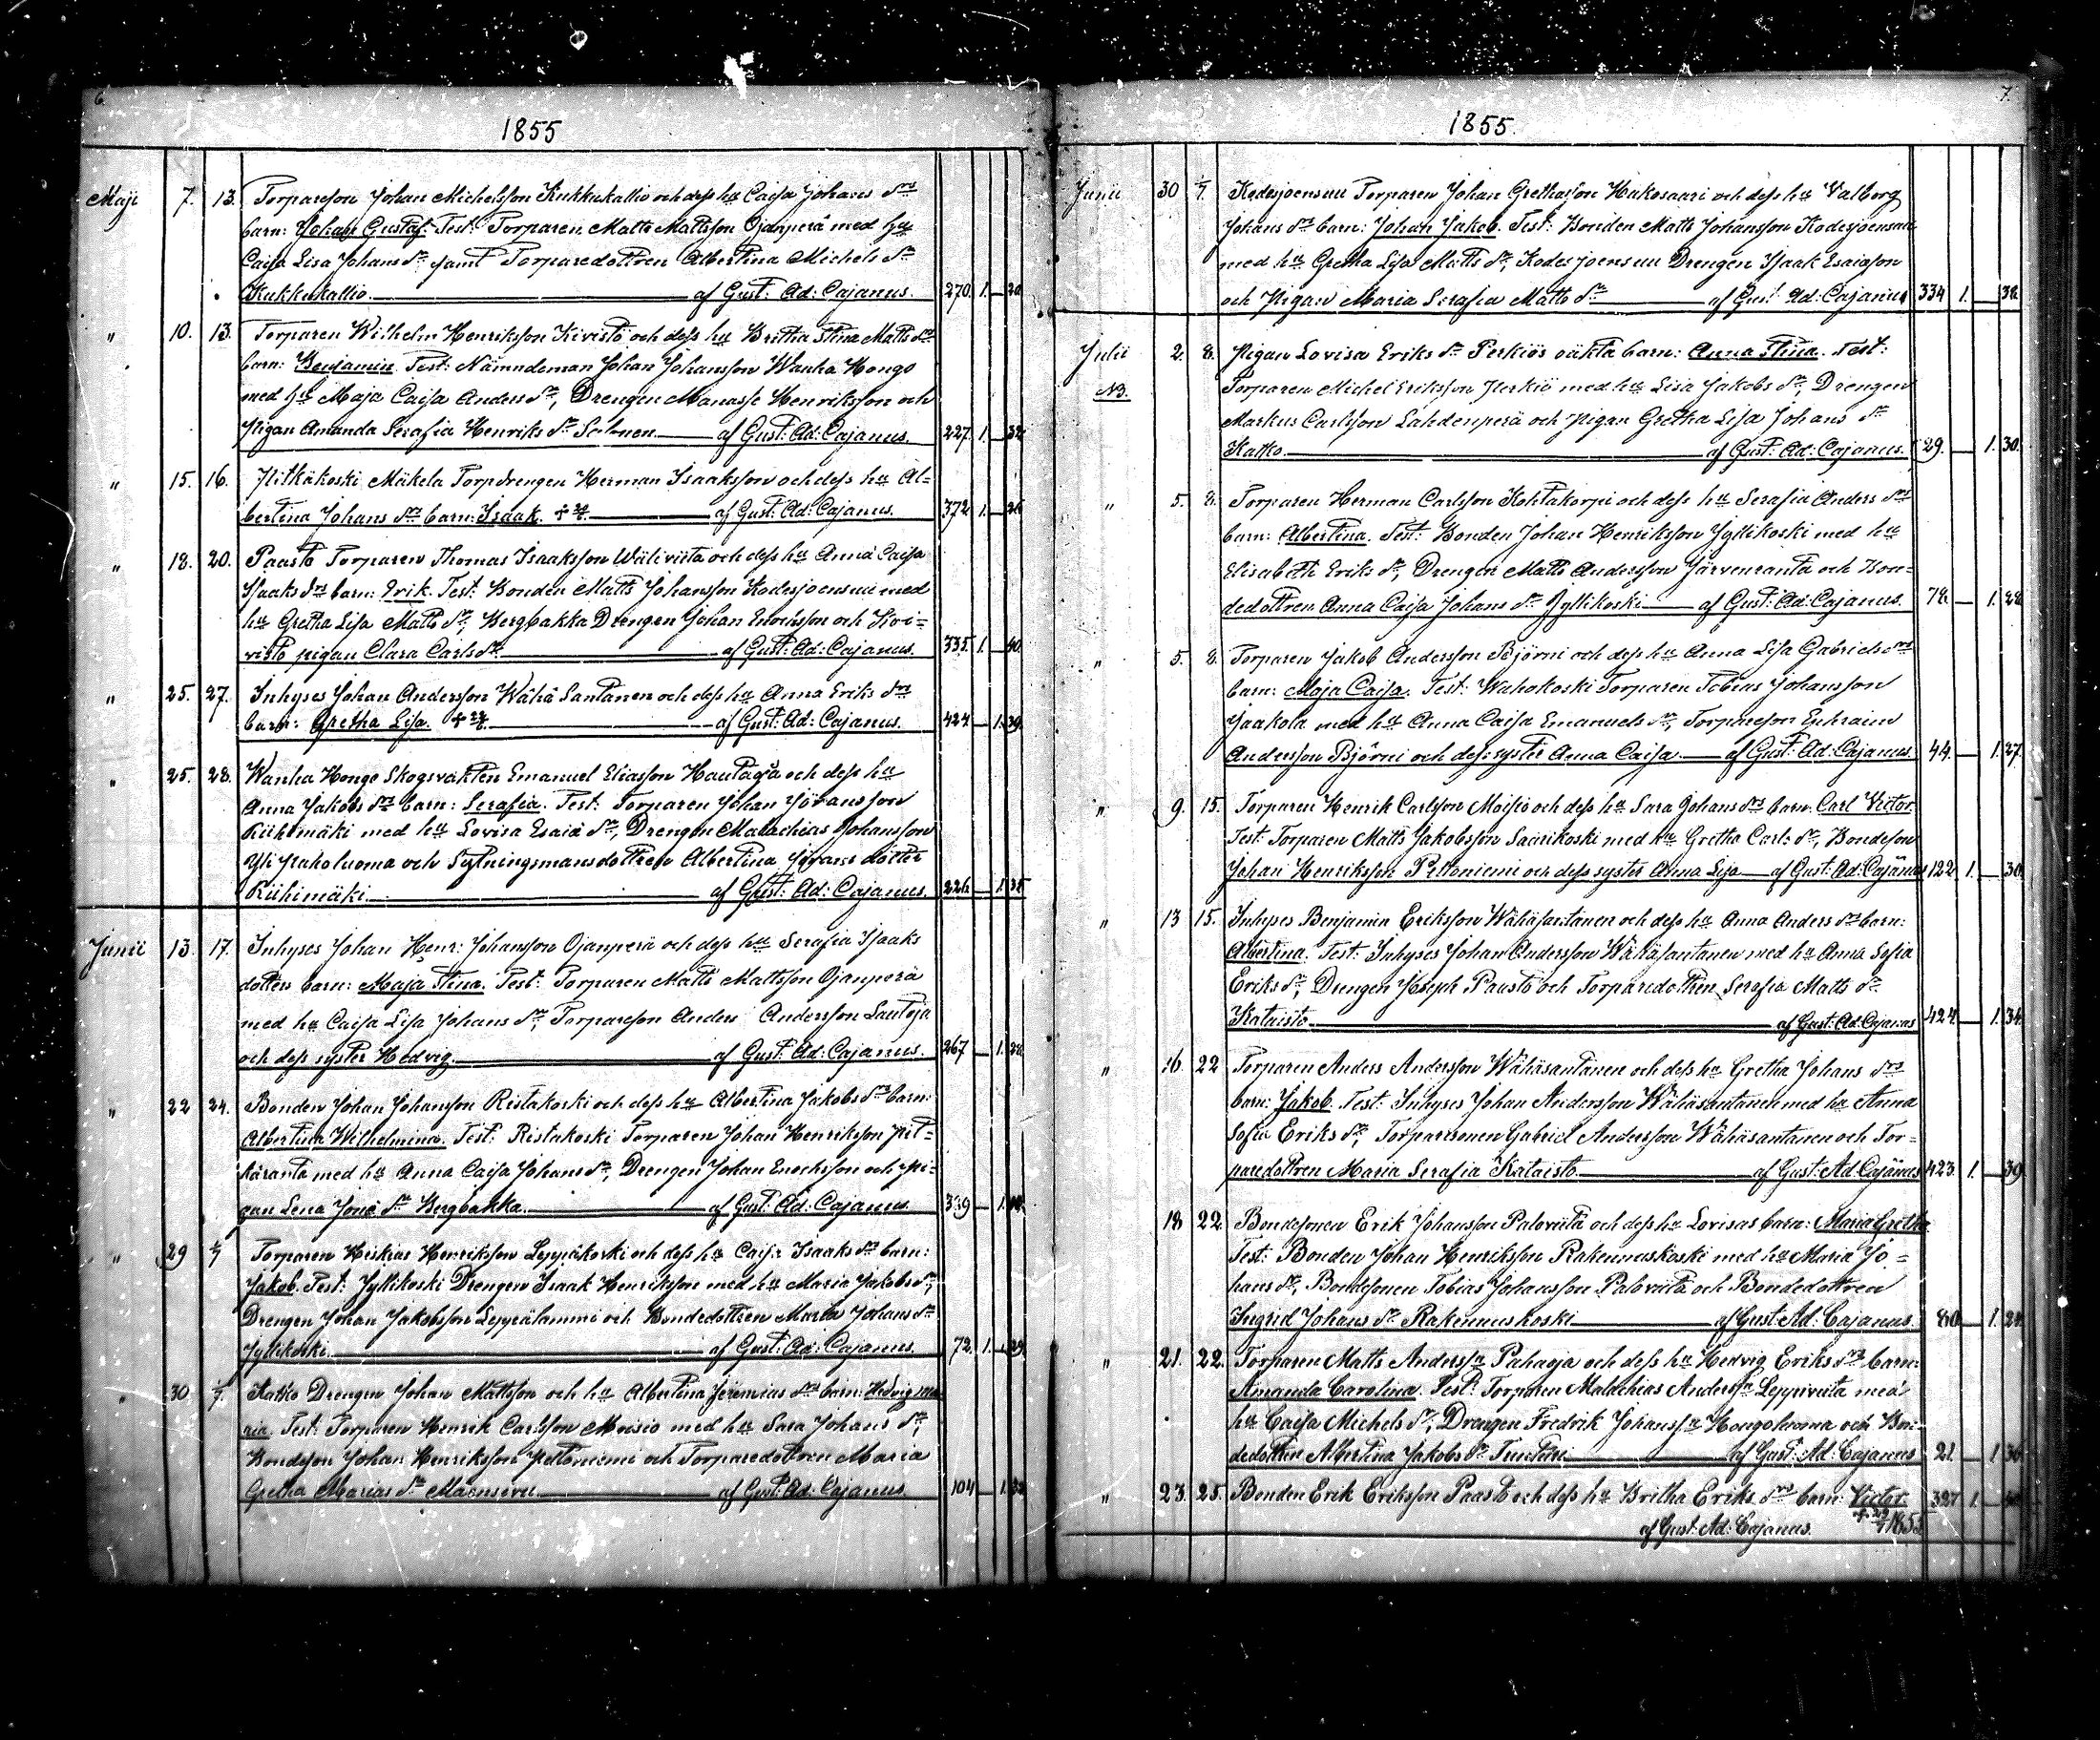 6.
1855
Maji 7. 13. Torpareson Johan Michelsson Kukkukallio och dess hu Caisa Johans drs
barn: Johan Gustaf. Test: Torparen Matts Mattsson Ojanperä med hu
Caisa Lisa Johans dr samt Torparedottren Albertina Michels dr
Kukkukallio. af Gust: Ad: Cajanus. 270. 1. 20
" 10. 13. Torparen Wilhelm Henriksson Kivistö och dess hu Britha Stina Matts drs
barn: Benjamin. Test: Nämndeman Johan Johansson Wanha Hongo
med hu Maja Caisa Anders dr, Drengen Manasse Henriksson och
Pigan Amanda Serafia Henriks dr af Gust: Ad: Cajanus. 227. 1. 32
" 15. 16. Pitkäkoski Mäkela Torpdrengen Herman Isaaksson och dess hu Al=
bertina Johans drs barn: Isaak. af Gust: Ad: Cajanus. 372 1. 26
" 18. 20. Paasto Torparen Thomas Isaaksson Wäliviita och dess hu Anna Caisa
Isaaks drs barn: Erik. Test: Bonden Matts Johansson Kodesjoensuu med
hu Gretha Lisa Matts dr, Bergbakka Drengen Johan Enochsson och Koi=
visto pigan Clara Carls dr. af Gust: Ad: Cajanus. 335. 1. 40.
" 25. 27. Inhyses Johan Andersson Wähä Santanen och dess hu Anna Eriks drs
barn: Gretha Lisa. af Gust: Ad: Cajanus. 424 1. 39.
" 25. 28. Wanha Hongo Skogsvakten Emanuel Eliasson Hautaoja och dess hu
Anna Jakobs drs barn: Serafia. Test: Torparen Johan Jöransson
Riihimäki med hu Lovisa Esaiæ dr, Drengen Malachias Johansson
Yli Paholuoma och Sytningsmansdottren Albertina Jörans dotter
Riihimäki. af Gust: Ad: Cajanus. 226 1. 35
Junii 13. 17. Inhyses Johan Henr: Johansson Ojanperä och dess hu Serafia Isaaks
dotters barn: Maja Stina. Test: Torparen Matts Mattsson Ojanperä
med hu Caisa Lisa Johans dr, Torpareson Anders Andersson Lautoja
och dess syster Hedvig. af Gust: Ad: Cajanus. 267 1. 28
" 22 24. Bonden Johan Johansson Ristakoski och dess hu Albertina Jakobs drs barn:
Albertina Wilhelmina. Test: Ristakoski Torparen Johan Henriksson Pit=
käranta med hu Anna Caisa Johans dr, Drengen Johan Enochsson och Pi=
gan Lena Jonæ dr Bergbakka. af Gust: Ad: Cajanus. 339 1.
" 29 1/7 Torparen Heskias Henriksson Leppäkoski och dess hu Caisa Isaaks drs barn:
Jakob. Test: Jyllikoski Drengen Isaak Henriksson med hu Maria Jakobs dr,
Drengen Johan Jakobsson Leppälammi och Bondedottren Maria Johans dr
Jyllikoski. af Gust: Ad: Cajanus. 72. 1. 29.
" 30 1/7. Katko Drengen Johan Mattsson och hu Albertina Jeremias drs barn: Hedvig Ma
ria. Test: Torparen Henrik Carlsson Moisio med hu Sara Johans dr,
Bondeson Johan Henriksson Peltoniemi och Torparedottren Maria
Gretha Marias dr Maensivu. af Gust: Ad: Cajanus. 104 1.
7.
1855.
Junii 30 1/7. Kodesjoensuu Torparen Johan Grethasson Hakosaari och dess hu Valborg
Johans drs barn: Johan Jakob. Test: Bonden Matts Johansson Kodesjoensuu
med hu Gretha Lisa Matts dr, Kodesjoensuu Drengen Isaak Esaiasson
och Pigan Maria Serafia Matts dr af Gust: Ad: Cajanus 334 1. 38.
Julii 2. 8. Pigan Lovisa Eriks dr Perkiös oäkta barn: Anna Stina. Test:
NB. Torparen Michel Eriksson Perkiö med hu Lisa Jakobs dr, Drengen
Markus Carlsson Lähdenperä och Pigan Gretha Lisa Johans dr
Katko. af Gust: Ad: Cajanus. 29. 1. 30.
" 5. 8. Torparen Herman Carlsson Kohtakorpi och dess hu Serafia Anders drs
barn: Albertina. Test: Bonden Johan Henriksson Jyllikoski med hu
Elisabeth Eriks dr, Drengen Matts Andersson Järvenranta och Bon=
dedottren Anna Caisa Johans dr Jyllikoski af Gust: Ad: Cajanus. 78. 1. 28
" 5. 8. Torparen Jakob Andersson Björni och dess hu Anna Lisa Gabriels drs
barn: Maja Caisa. Test: Wahokoski Torparen Tobias Johansson
Jaakola med hu Anna Caisa Emanuels dr, Torpareson Ephraim
Andersson Björni och dess syster Anna Caisa. af Gust: Ad: Cajanus. 44. 1. 27.
" 9. 15. Torparen Henrik Carlsson Moisio och dess hu Sara Johans drs barn: Carl Victor
Test: Torparen Matts Jakobsson Saarikoski med hu Gretha Carls dr, Bondeson
Johan Henriksson Peltoniemi och dess syster Anna Lisa af Gust: Ad: Cajanus 122 1. 30
" 13 15. Inhyses Benjamin Eriksson Wähäsantanen och dess hu Anna Anders drs barn:
Albertina. Test: Inhyses Johan Andersson Wähäsantanen med hu Anna Sofia
Eriks dr, Drengen Joseph Paasto och Torparedottren Serafia Matts dr
Kataisto. af Gust: Ad: Cajanus 424. 1. 34.
" 16. 22 Torparen Anders Andersson Wähäsantanen och dess hu Gretha Johans drs
barn: Jakob. Test: Inhyses Johan Andersson Wähäsantanen med hu Anna
Sofia Eriks dr, Torparesonen Gabriel Andersson Wähäsantanen och Tor=
paredottren Maria Serafia Kataisto. af Gust: Ad: Cajanus 423. 1. 39
18 22. Bondesonen Erik Johansson Paloviita och dess hu Lovisas barn: Maria Gretha
Test: Bonden Johan Henriksson Rakennuskoski med hu Maria Jo=
hans dr, Bondesonen Tobias Johansson Paloviita och Bondedottren
Ingrid Johans dr Rakennuskoski. af Gust: Ad: Cajanus. 80 1. 24.
" 21. 22. Torparen Matts Anderssn Pahaoja och dess hu Hedvig Eriks drs barn:
Amanda Carolina. Test: Torparen Malachias Anderssn Leppiviita med
hu Caisa Michels dr, Drengen Fredrik Johanssn Hongoluoma och Bon=
dedottren Albertina Jakobs dr Tunturi af Gust: Ad: Cajanus 21. 1 36
" 23. 25. Bonden Erik Eriksson Paasto och dess hu Britha Eriks drs barn: Victor. 327 1.
af Gust: Ad: Cajanus. 1855